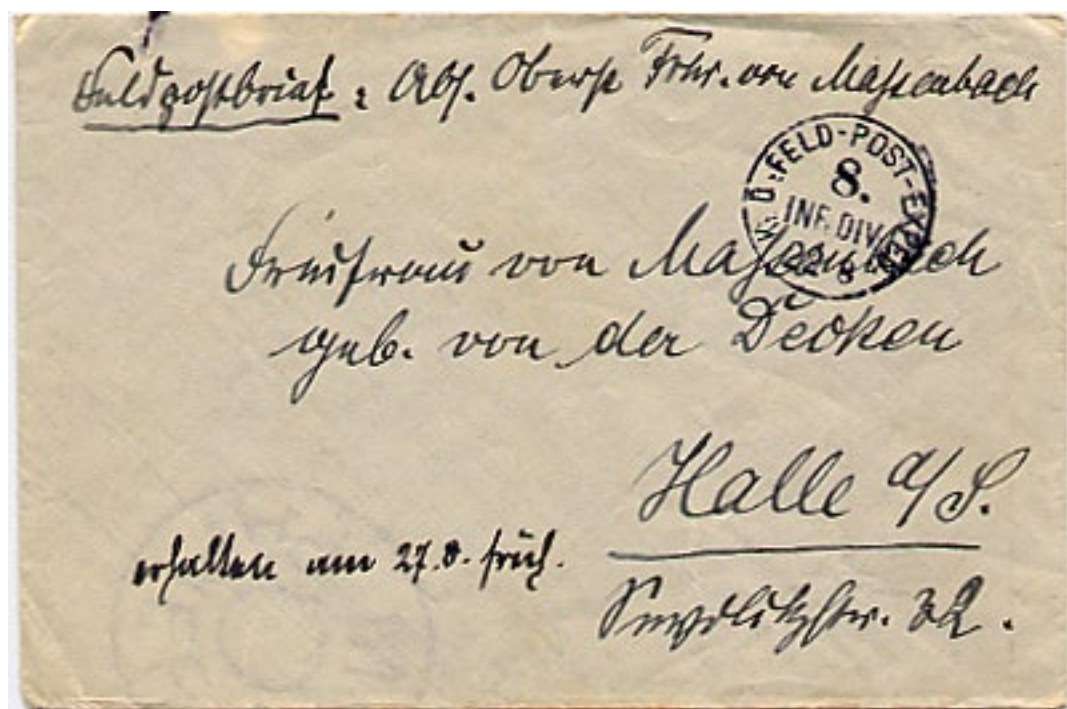 Feldpostbrief: Abs. Oberst Frhr. von Massenbach
K.D. FELD-POST-EXPED.
8.
INF. DIV.
22 8
Freifrau von Massenbach
geb. von der Decken
Halle a/S.
erhalten am 27.8. früh.
Seydlitzstr. 32.